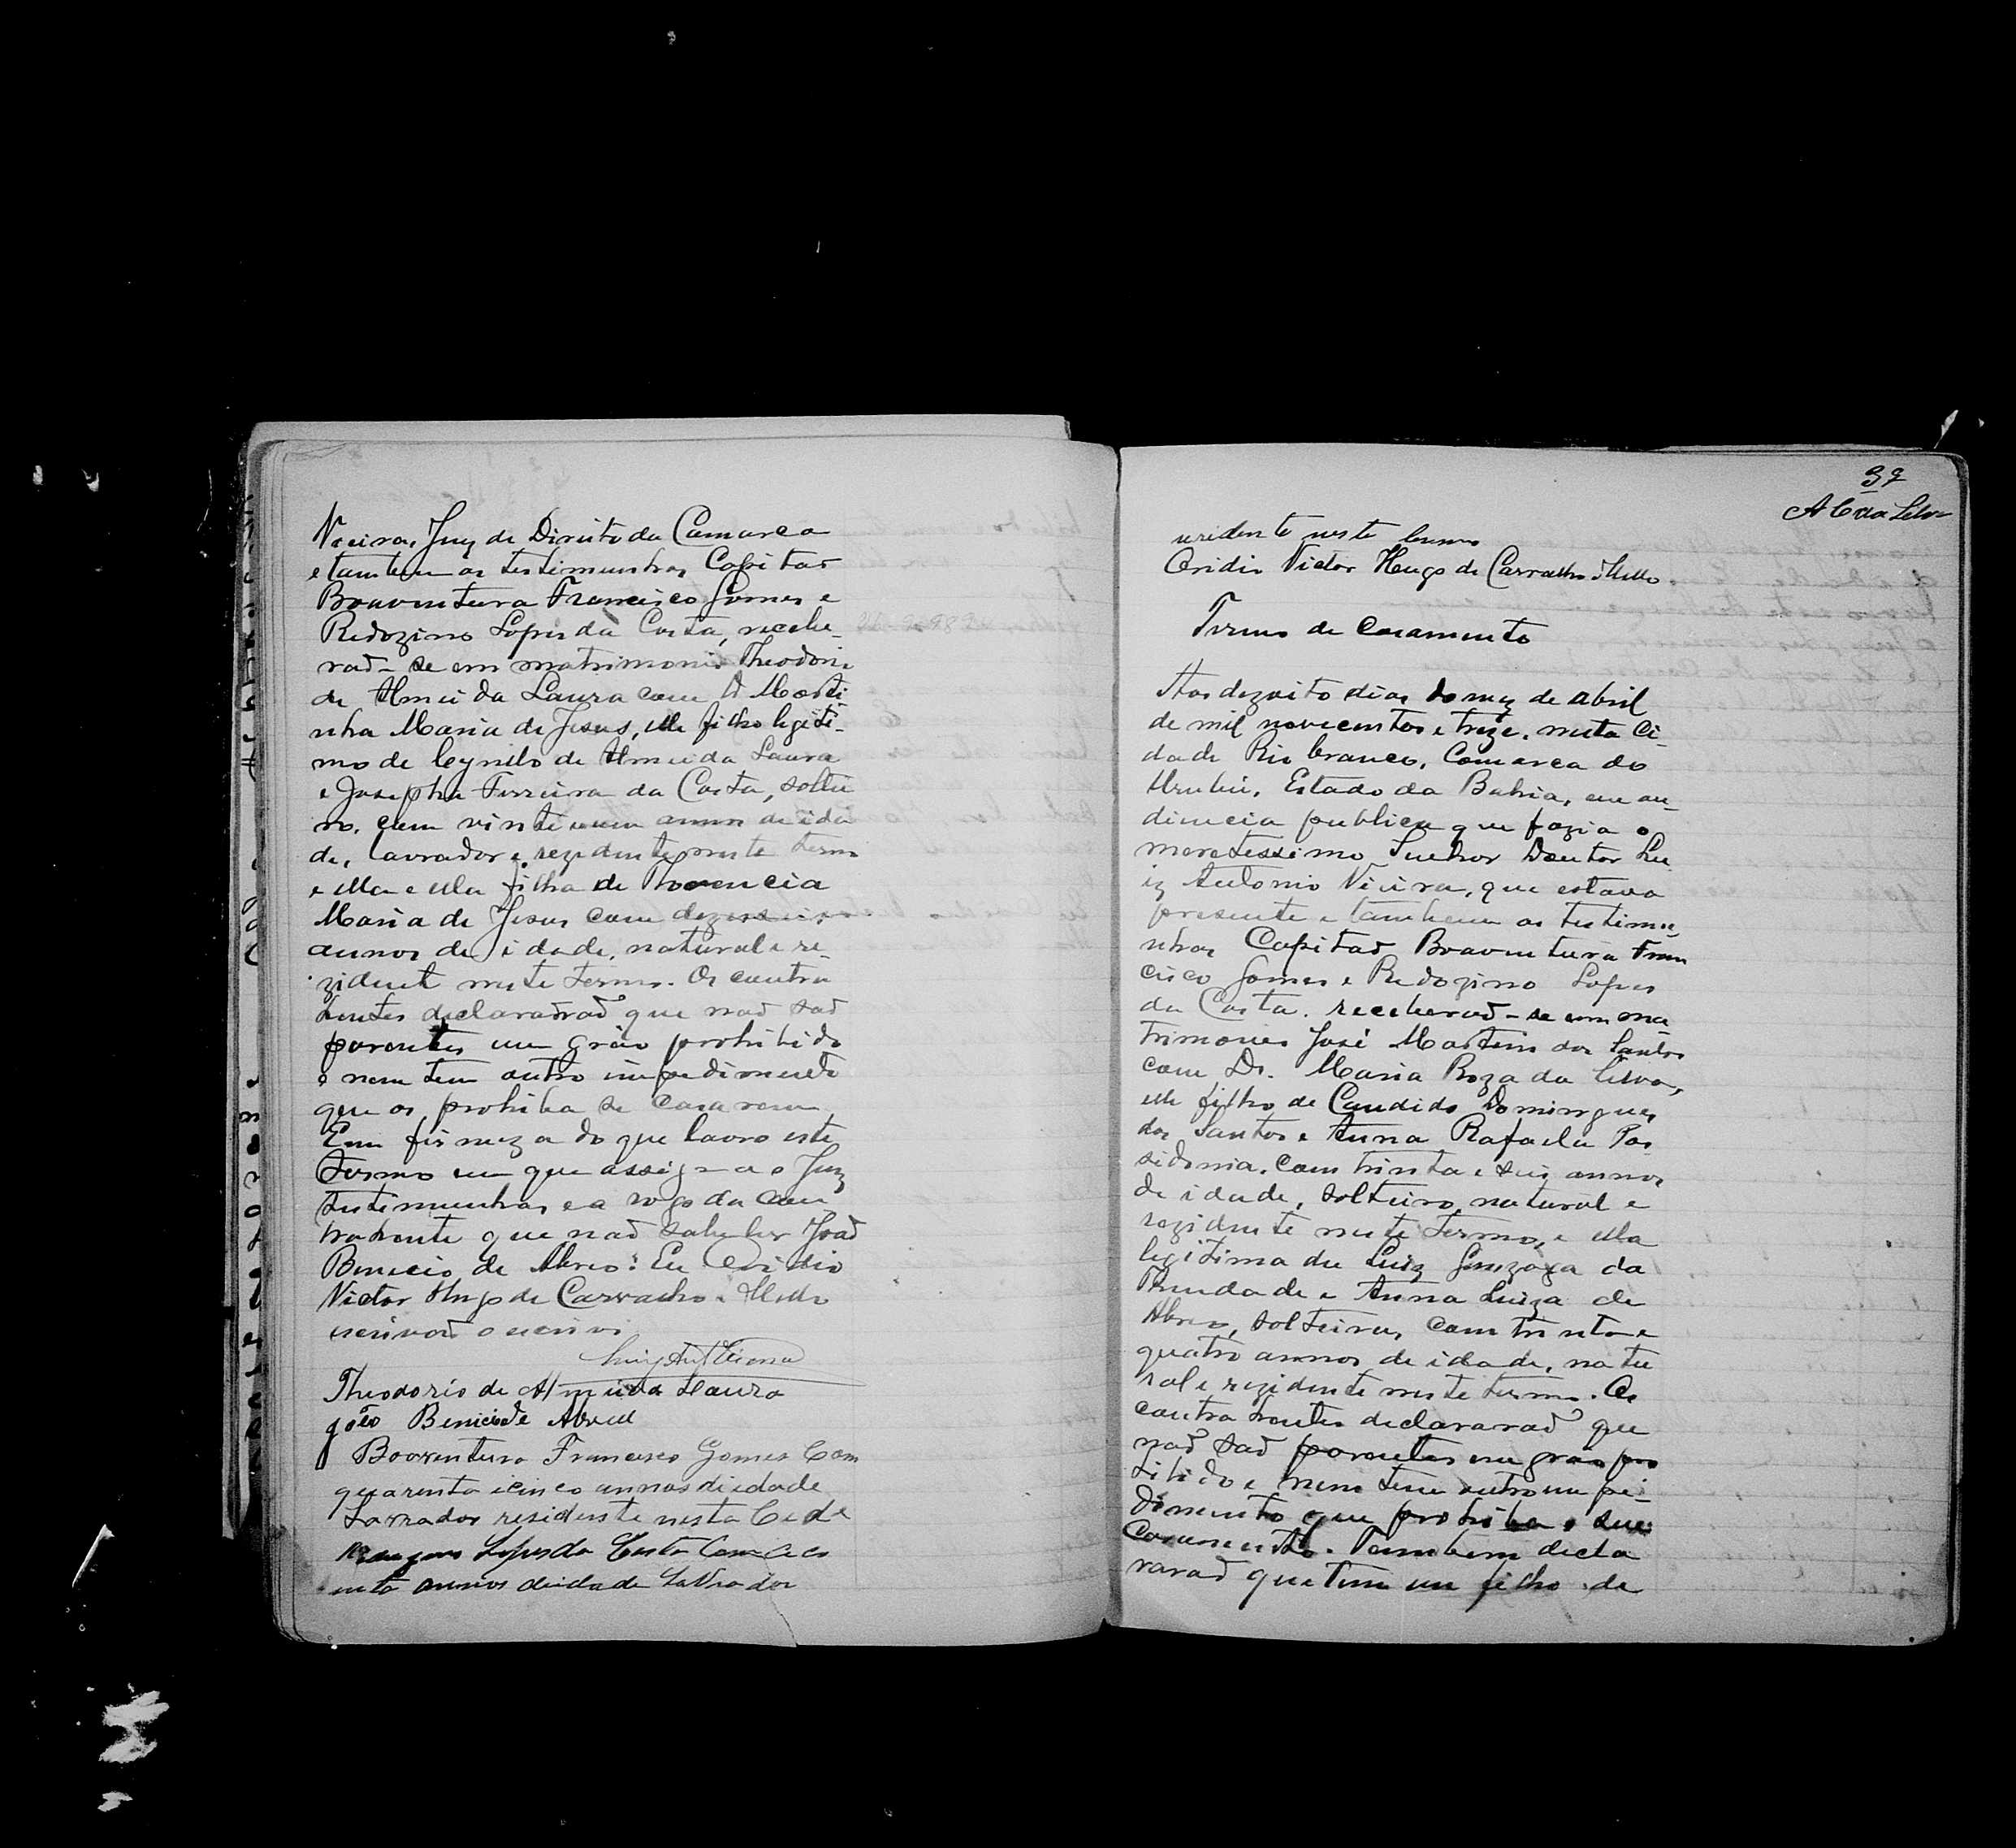 Vieira, Juiz de Direito da Comarca
e tambem as testimunhas Capitão
Boaventura Francisco Gomes e
Redozino Lopes da Costa, recebe-
rad-se em matrimonio Theodorio
de Almeida Laura com D Marti
nha Maria de Jesus, elle filho legiti-
mo de de Almeida Laura
e Josepha Ferreira da Costa, soltei
ro, com vinte um annos de ida
de, lavrador e rezidente neste termo
e ella e ella filha de
Maria de Jesus com
annos de idade, natural e re-
zident neste termo. Os contra
hentes declararad que nad sad
parentes em gráo prohibido
e nem tem outro impedimento
que os prohiba se casarem
Em firmeza do que lavro este
termo em que assigna o Juiz
testimunhas e a rogo da con
trahente que nad sabe ler Joad
Benicio de Abreo: Eu Ovidio
Victor Hugo de Carvalho e Mello
escrivad o escrivi
Luiz Ant Vieira
Theodorio de Almeida Laura
joão Benicio de Abreu
Boaventura Francisco Gomes Com
quarenta icinco annos di idade
Lavrador residente nesta Cidde
Lopes da Costa Com
annos deidade Lavrador
37
A C da Silva
rezidente neste termo
Ovidio Victor Hugo de Carvalho e Mello.
Termo de Casamento
Aos dezoito dias do mez de abril
de mil novecentos e treze, nesta Ci-
dade Rio branco, Comarca do
Urubú, Estado da Bahia, em au-
diencia publica que fazia o
meretessimo Senhor Doutor Lu
iz Antonio Vieira, que estava
presente e tambem as testimu-
nhas Capitad Boaventura Fran
cisco Gomes e Redozino Lopes
da Costa. receberad-se em ma
trimonio José Martins dos Santos
com D. Maria Roza da Silva,
elle filho de Candido Domingues
dos Santos e Anna Rafaela Pos
sidonia. Com trinta e seis annos
de idade, solteiro, natural e
rezidente neste termo, e ella
legitima de Luiz Gonzaga da
Trindade e Anna Luiza de
Abreo, solteira, com trinta e
quatro annos de idade, natu
ral e rezidente neste termo. Os
contrahentes declararad que
nad sad parentes em gráo pro
hibido e nem tem outro impe-
dimento que prohiba o seu
Casamento. Tambem decla
rarad que tem um filho de